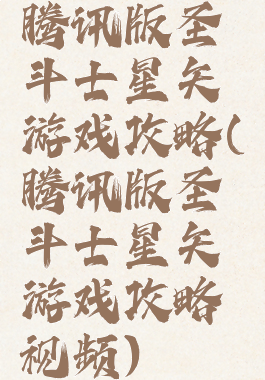 腾讯版圣
斗士星矢
游戏攻略(
腾讯版圣
斗士星矢
游戏攻略
视频)